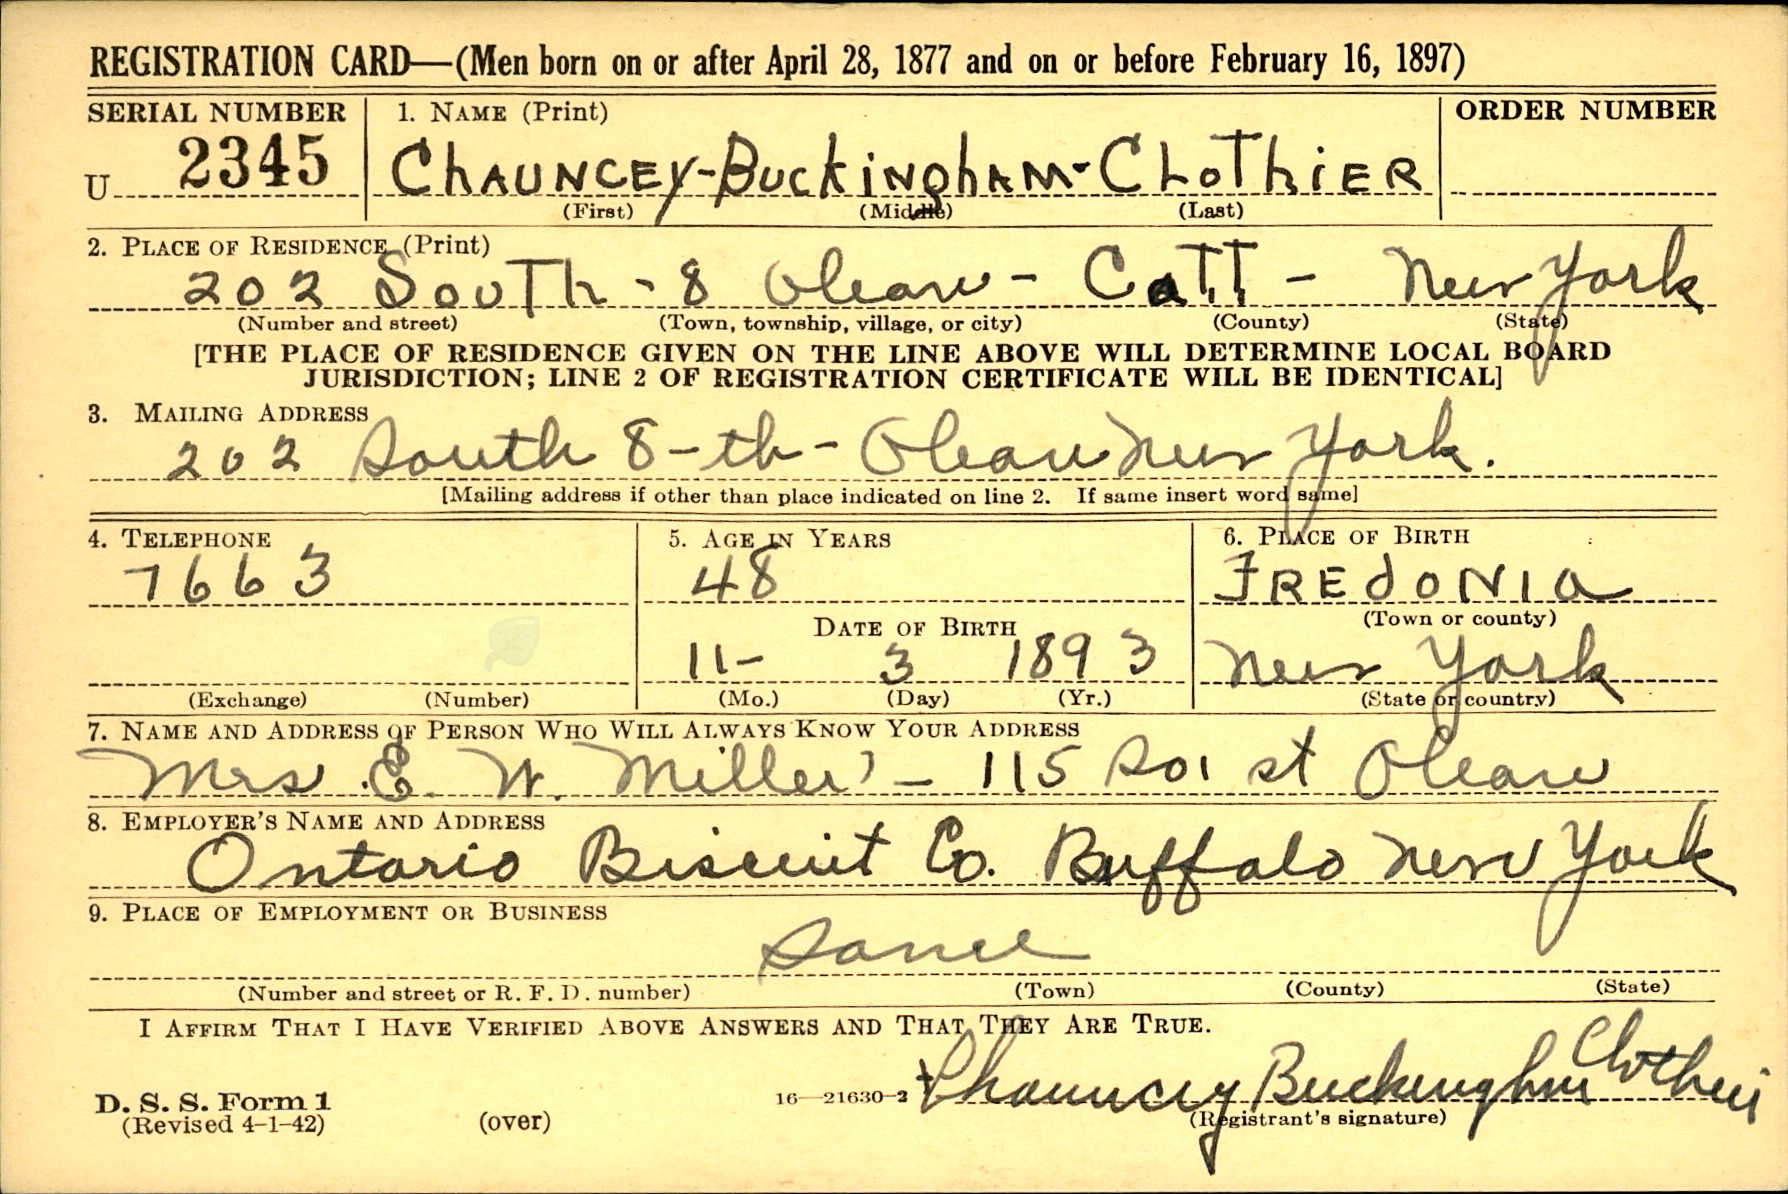 REGISTRATION CARD—(Men born on or after April 28, 1877 and on or before February 16, 1897)
SERIAL NUMBER 1. NAME (Print) ORDER NUMBER
U 2345 CHAUNCEY-BUCKINGHAM-CLOTHIER
(First) (Middle) (Last)
2. PLACE OF RESIDENCE (Print)
202 South - 8 Olean - CATT - New York
(Number and street) (Town, township, village, or city) (County) (State)
[THE PLACE OF RESIDENCE GIVEN ON THE LINE ABOVE WILL DETERMINE LOCAL BOARD
JURISDICTION; LINE 2 OF REGISTRATION CERTIFICATE WILL BE IDENTICAL]
3. MAILING ADDRESS
202 South 8-th - Olean New York.
[Mailing address if other than place indicated on line 2. If same insert word same]
4. TELEPHONE 5. AGE IN YEARS 6. PLACE OF BIRTH
7663 48 FREDONIA
DATE OF BIRTH (Town or county)
11- 3 1893 New York
(Exchange) (Number) (Mo.) (Day) (Yr.) (State or country)
7. NAME AND ADDRESS OF PERSON WHO WILL ALWAYS KNOW YOUR ADDRESS
Mrs. E. W. Miller - 115 So 1 st Olean
8. EMPLOYER'S NAME AND ADDRESS
Ontario Biscuit Co. Buffalo New York
9. PLACE OF EMPLOYMENT OR BUSINESS
Same
(Number and street or R. F. D. number) (Town) (County) (State)
I AFFIRM THAT I HAVE VERIFIED ABOVE ANSWERS AND THAT THEY ARE TRUE.
D. S. S. Form 1 16—21630-2 Chauncey Buckingham Clothier
(Revised 4-1-42) (over) (Registrant's signature)